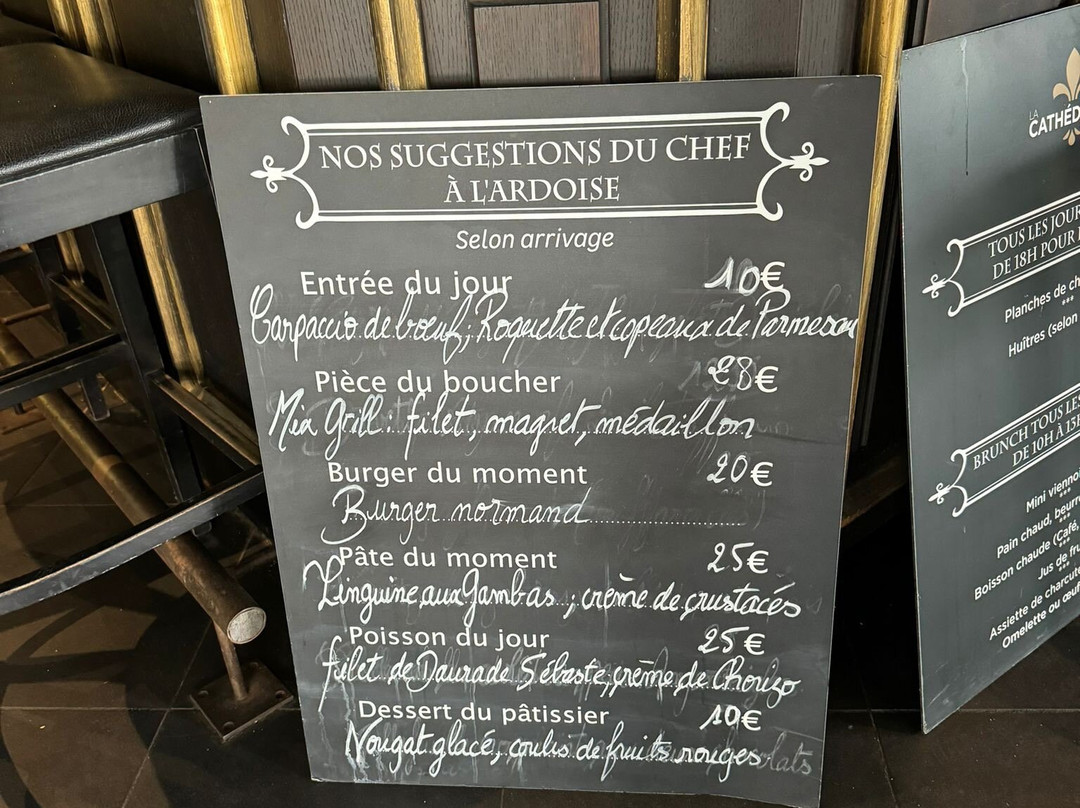 NOS SUGGESTIONS DU CHEF
À L'ARDOISE
Selon arrivage
Entrée du jour 10€
Carpaccio de bœuf, Roquette et copeaux de Parmesan
Pièce du boucher 28€
Mix Grill : filet, magret, médaillon
Burger du moment 20€
Burger normand
Pâte du moment 25€
Linguine aux Gambas, crème de crustacés
Poisson du jour 25€
filet de Daurade Sébaste, crème de Chorizo
Dessert du pâtissier 10€
Nougat glacé, coulis de fruits rouges
LA
CATHÉD
TOUS LES JOUR
DE 18H POUR
Planches de ch
***
Huîtres (selon
BRUNCH TOUS LES
DE 10H À 15H
Mini vienno
***
Pain chaud, beurr
***
Boisson chaude (Café,
***
Jus de fru
***
Assiette de charcut
Omelette ou œu